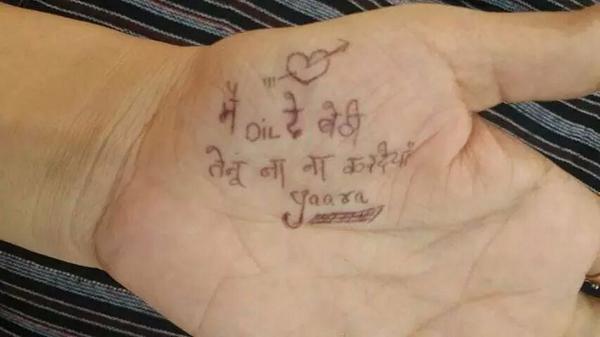 मैं DiL दे बैठी
तेनू ना ना करदेयां
yaara